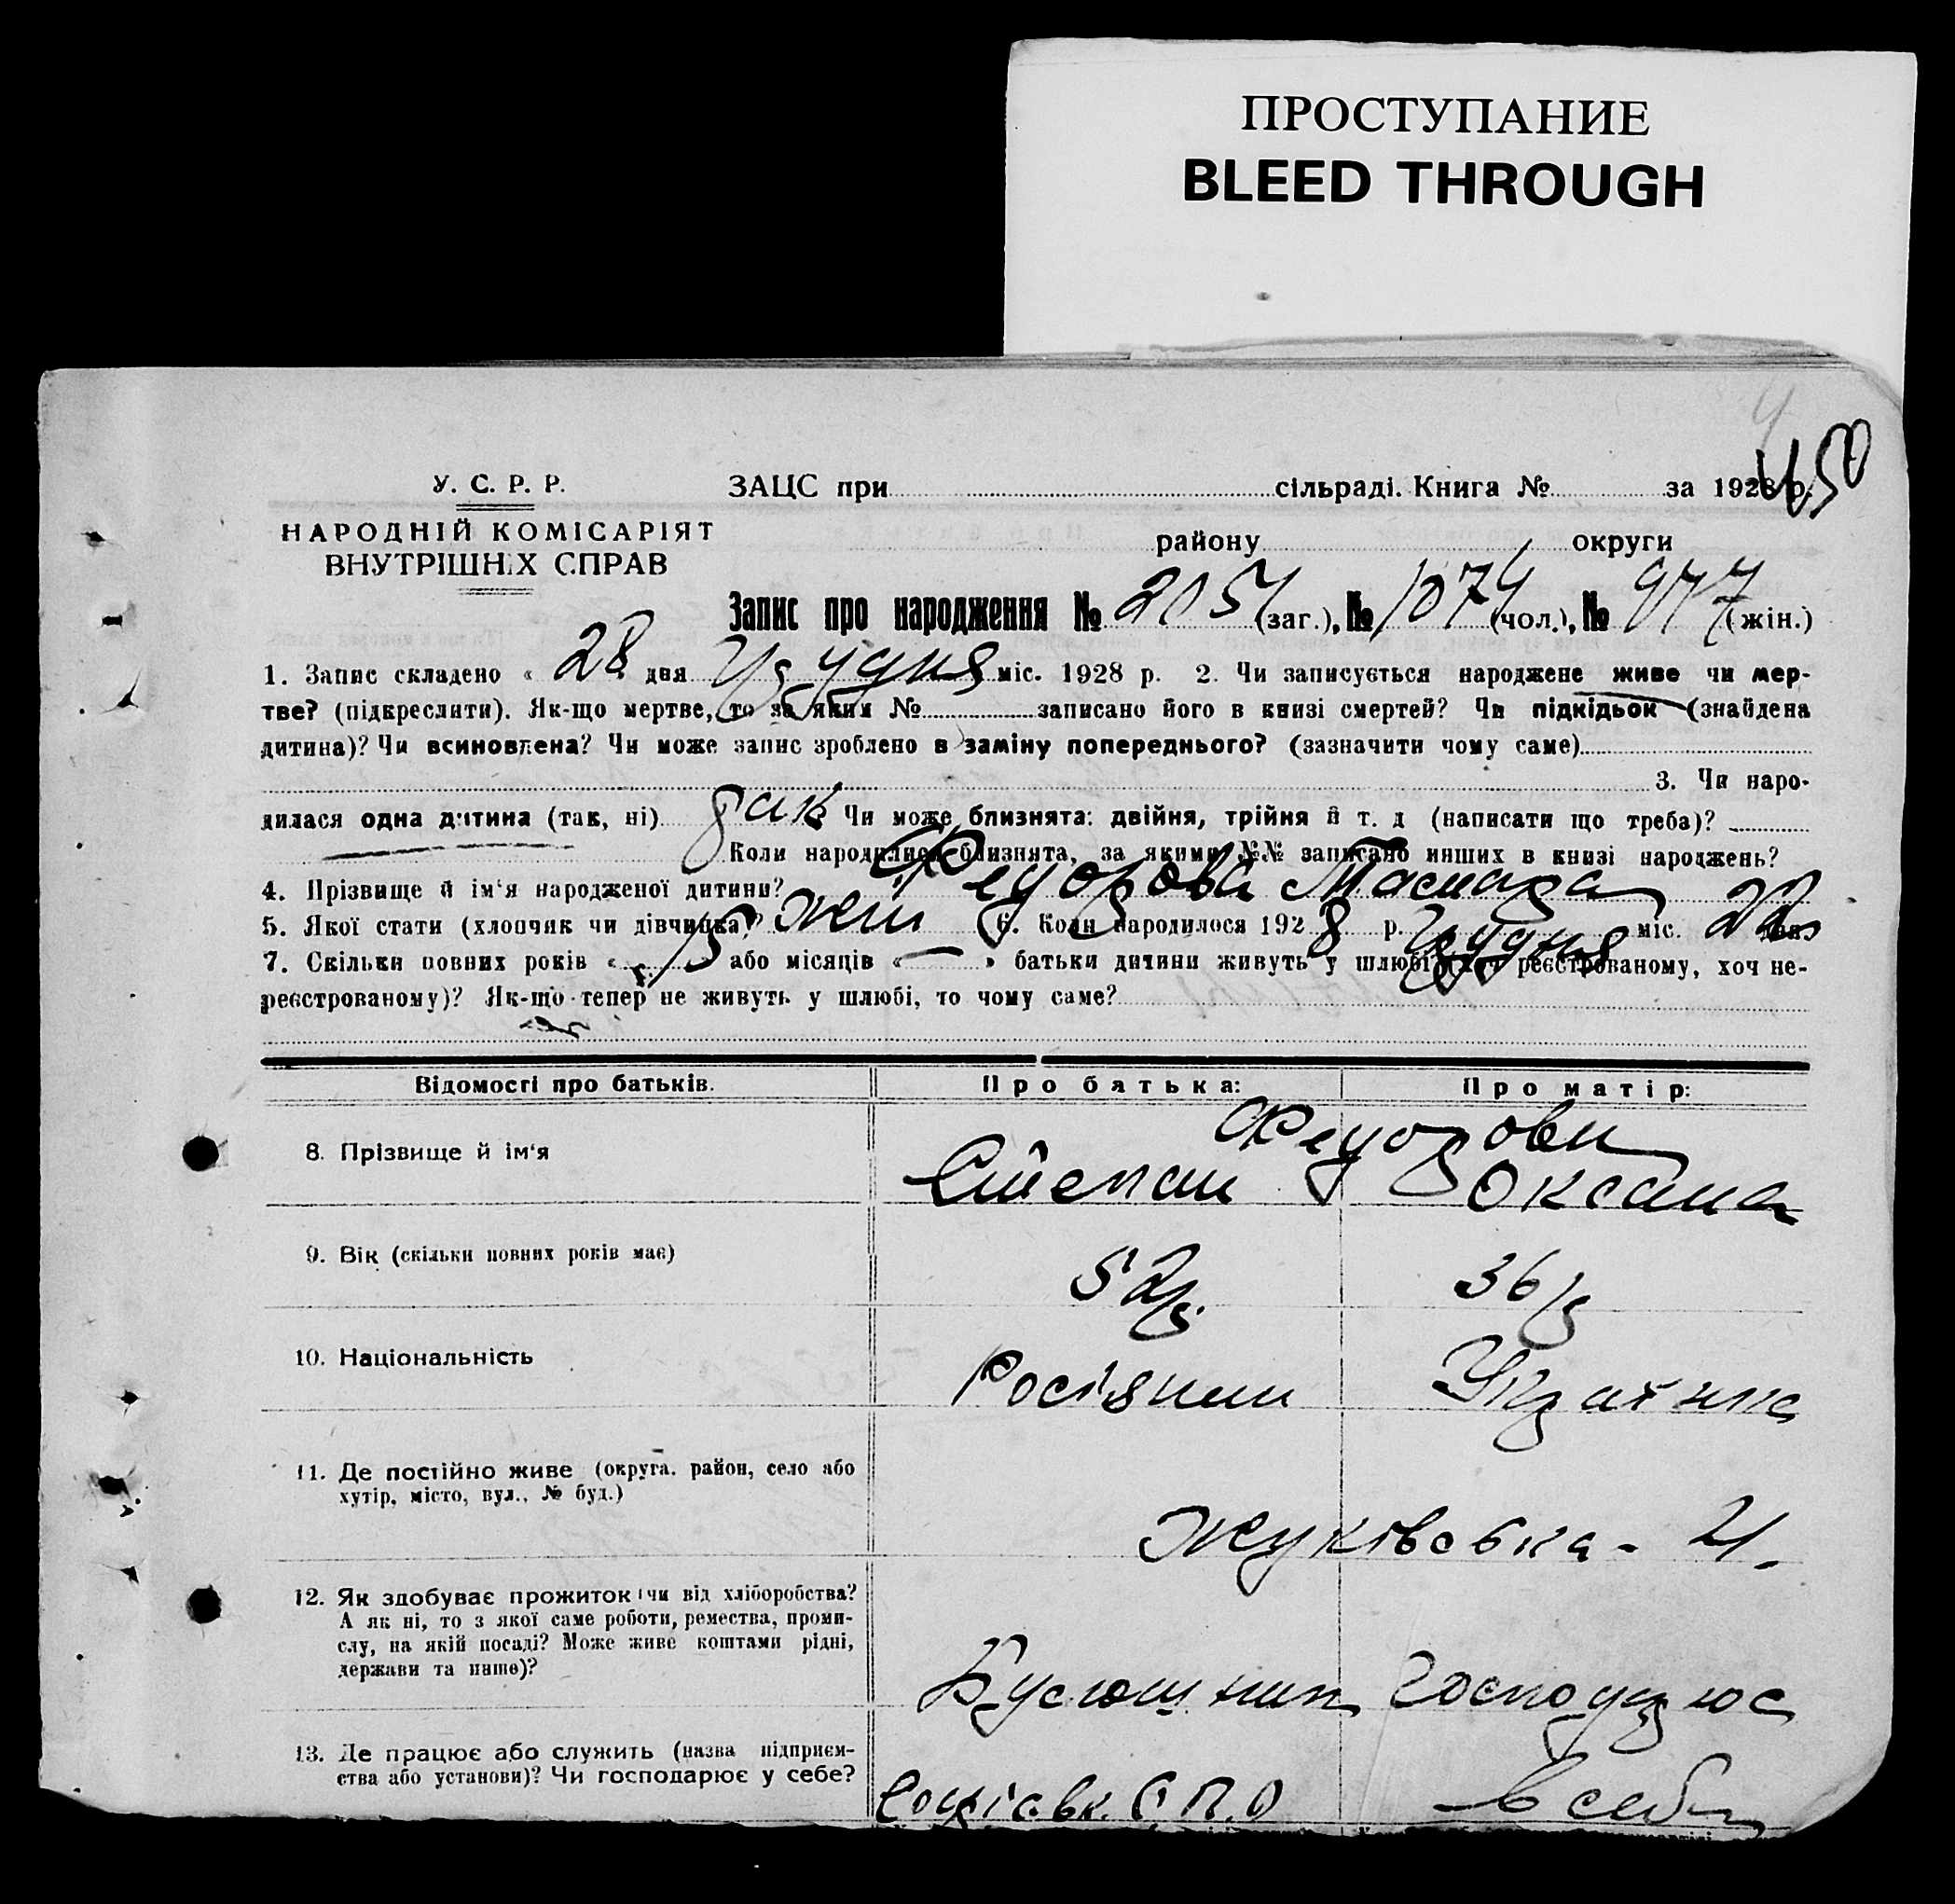 ПРОСТУПАНИЕ
BLEED THROUGH
4
У. С. Р. Р.
НАРОДНІЙ КОМІСАРІЯТ
ВНУТРІШНІХ СПРАВ
ЗАЦС при сільраді. Книга № за 1928 р.
району округи
Запис про народження № 2051 (заг.), № 1074 (чол.), № 977 (жін.)
1. Запис складено « 28 дня Грудня міс. 1928 р. 2. Чи записується народжене живе чи мер-
тве? (підкреслити). Як-що мертве, то за яким № записано його в книзі смертей? Чи підкідьок (знайдена
дитина)? Чи всиновлена? Чи може запис зроблено в заміну попереднього? (зазначити чому саме)
3. Чи наро-
дилася одна дитина (так, ні) так Чи може близнята: двійня, трійня й т. д (написати що треба)?
Коли народилися близнята, за якими №№ записано инших в книзі народжень?
4. Прізвище й ім'я народженої дитини? Федорова Тамара
5. Якої стати (хлопчик чи дівчинка)? жін 6. Коли народилося 1928 р. Грудня міс. 22 дня
7. Скільки повних років « 15 або місяців « — » батьки дитини живуть у шлюбі (хоч реєстрованому, хоч не-
реєстрованому)? Як-що тепер не живуть у шлюбі, то чому саме?
Відомості про батьків. Про батька: Про матір:
8. Прізвище й ім'я Федорови
Степан Оксана
9. Вік (скільки повних років має) 52 р. 36 р
10. Національність Росіянин Українка
11. Де постійно живе (округа, район, село або
хутір, місто, вул., № буд.)
Жуківська - 21.
12. Як здобуває прожиток (чи від хліборобства?
А як ні, то з якої саме роботи, ремества, проми-
слу, на якій посаді? Може живе коштами рідні,
держави та инше)?
Господарює
13. Де працює або служить (назва підприєм-
ства або установи)? Чи господарює у себе?
С П.О в себе